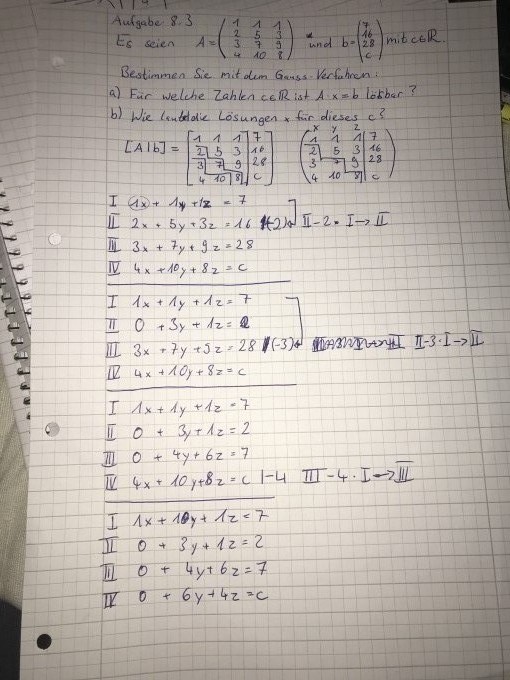 Aufgabe 8.3
Es seien A = ( 1 1 1 / 2 5 3 / 3 7 9 / 4 10 8 ) und b = ( 7 / 16 / 28 / c ) mit c∈ℝ
Bestimmen Sie mit dem Gauss-Verfahren:
a) Für welche Zahlen c∈ℝ ist A·x=b lösbar?
b) Wie die Lösungen x für dieses c?
x y z
[A|b] = [ 1 1 1 | 7 ] ( 1 1 1 | 7 )
2 5 3 | 16 2 5 3 | 16
3 7 9 | 28 3 7 9 | 28
4 10 8 | c 4 10 8 | c
I 1x + 1y + 1z = 7
II 2x + 5y + 3z = 16 |(-2) II-2·I→II
III 3x + 7y + 9z = 28
IV 4x + 10y + 8z = c
I 1x + 1y + 1z = 7
II 0 + 3y + 1z = 2
III 3x + 7y + 9z = 28 |(-3) II-3·I→II
IV 4x + 10y + 8z = c
I 1x + 1y + 1z = 7
II 0 + 3y + 1z = 2
III 0 + 4y + 6z = 7
IV 4x + 10y + 8z = c |-4 III-4·I→III
I 1x + 1y + 1z = 7
II 0 + 3y + 1z = 2
III 0 + 4y + 6z = 7
IV 0 + 6y + 4z = c